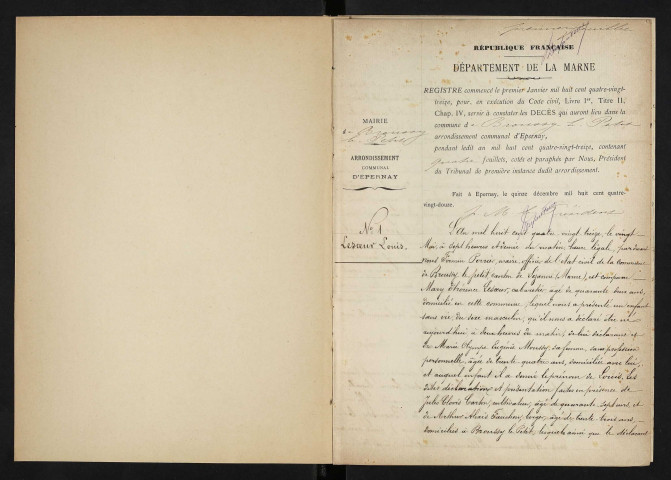 RÉPUBLIQUE FRANÇAISE
DÉPARTEMENT DE LA MARNE
REGISTRE commencé le premier Janvier mil huit cent quatre-vingt-
treize, pour, en exécution du Code civil, Livre Ier, Titre II,
Chap. IV, servir à constater les DÉCÈS qui auront lieu dans la
commune de Broussy le Petit
arrondissement communal d'Epernay,
pendant ledit an mil huit cent quatre-vingt-treize, contenant
feuillets, cotés et paraphés par Nous, Président
du Tribunal de première instance dudit arrondissement.
Fait à Epernay, le quinze décembre mil huit cent quatre-
vingt-douze.
MAIRIE
de Broussy
le Petit
ARRONDISSEMENT
COMMUNAL
D'EPERNAY
No 1
Lesœur Louis.
L'An mil huit cent quatre vingt treize, le vingt
Mai à sept heures du matin, heure légale, par devant
nous Perrier, maire, officier de l'état civil de la commune
de Broussy le petit canton de Sézanne (Marne), est comparu
Mary Lesœur, âgé de quarante deux ans,
domicilié en cette commune, lequel nous a présenté un enfant
sans vie, du sexe masculin, qu'il nous a déclaré être né
aujourd'hui à deux heures du matin, de lui déclarant et
de Marie Olympe Eugénie Moussy, sa femme, sans profession
personnelle, âgée de trente quatre ans, domiciliée avec lui,
et auquel enfant il a donné le prénom de Louis. Les
dites déclaration et présentation faites en présence de
Jules Clovis cultivateur, âgé de quarante sept ans, et
de Arthur Alexis berger, âgé de trente trois ans,
domiciliés à Broussy le Petit, lesquels ainsi que le déclarant